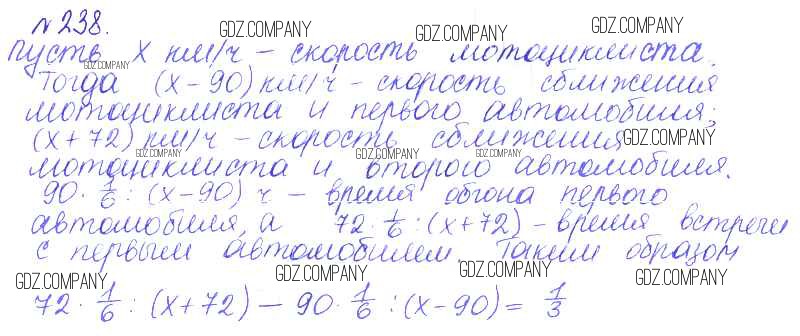 №238.
Пусть x км/ч – скорость мотоциклиста.
Тогда (x-90) км/ч – скорость сближения
мотоциклиста и первого автомобиля;
(x+72) км/ч – скорость сближения
мотоциклиста и второго автомобиля.
90 · 1/6 : (x-90) ч – время обгона первого
автомобиля, а 72 · 1/6 : (x+72) – время встречи
с первым автомобилем. Таким образом
72 · 1/6 : (x+72) – 90 · 1/6 : (x-90) = 1/3
GDZ.COMPANY
GDZ.COMPANY
GDZ.COMPANY
GDZ.COMPANY
GDZ.COMPANY
GDZ.COMPANY
GDZ.COMPANY
GDZ.COMPANY
GDZ.COMPANY
GDZ.COMPANY
GDZ.COMPANY
GDZ.COMPANY